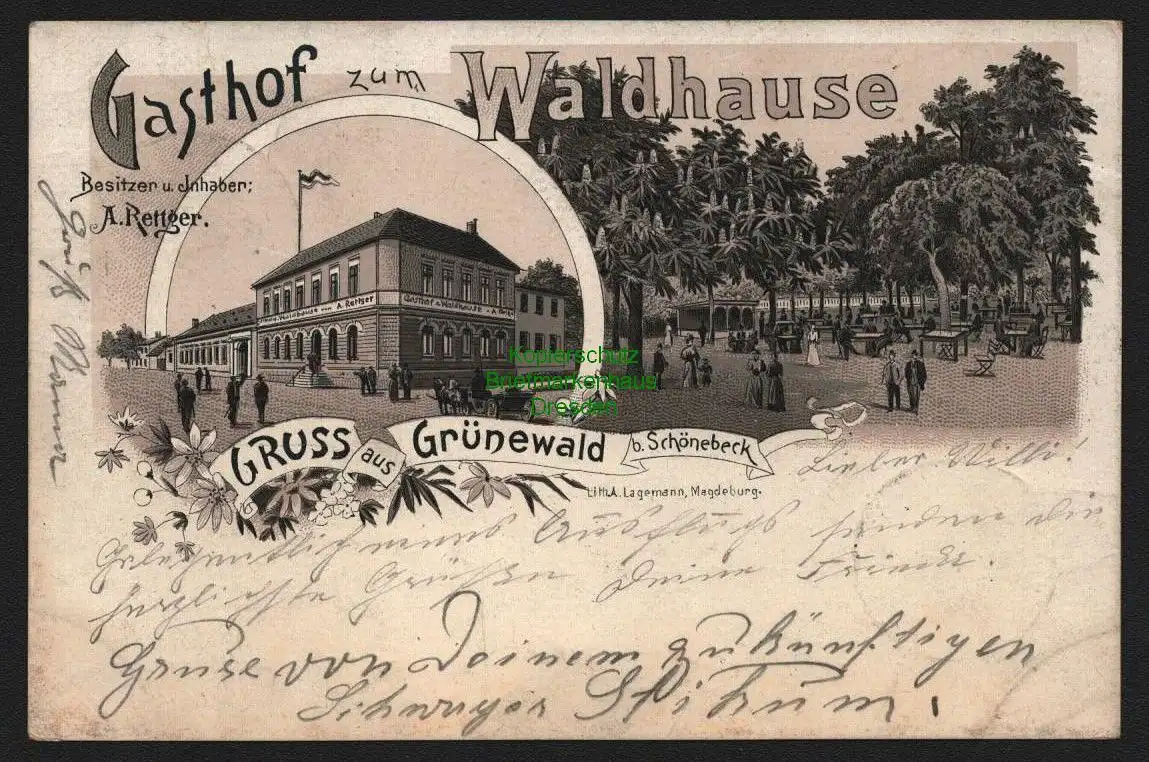 Gasthof zum Waldhause
Besitzer u. Inhaber;
A. Rettger.
von A. Rettger
Gasthof z. Waldhause v. A. Rettger
Kopierschutz
Briefmarkenhaus
Dresden
GRUSS aus Grünewald b. Schönebeck
Lith. A. Lagemann, Magdeburg.
Gruß
Lieber Willi!
Gelegentlich eines Ausflugs senden die
herzlichste Grüße Deine Frieda.
Grüse von Deinem zukünftigen
Schwager